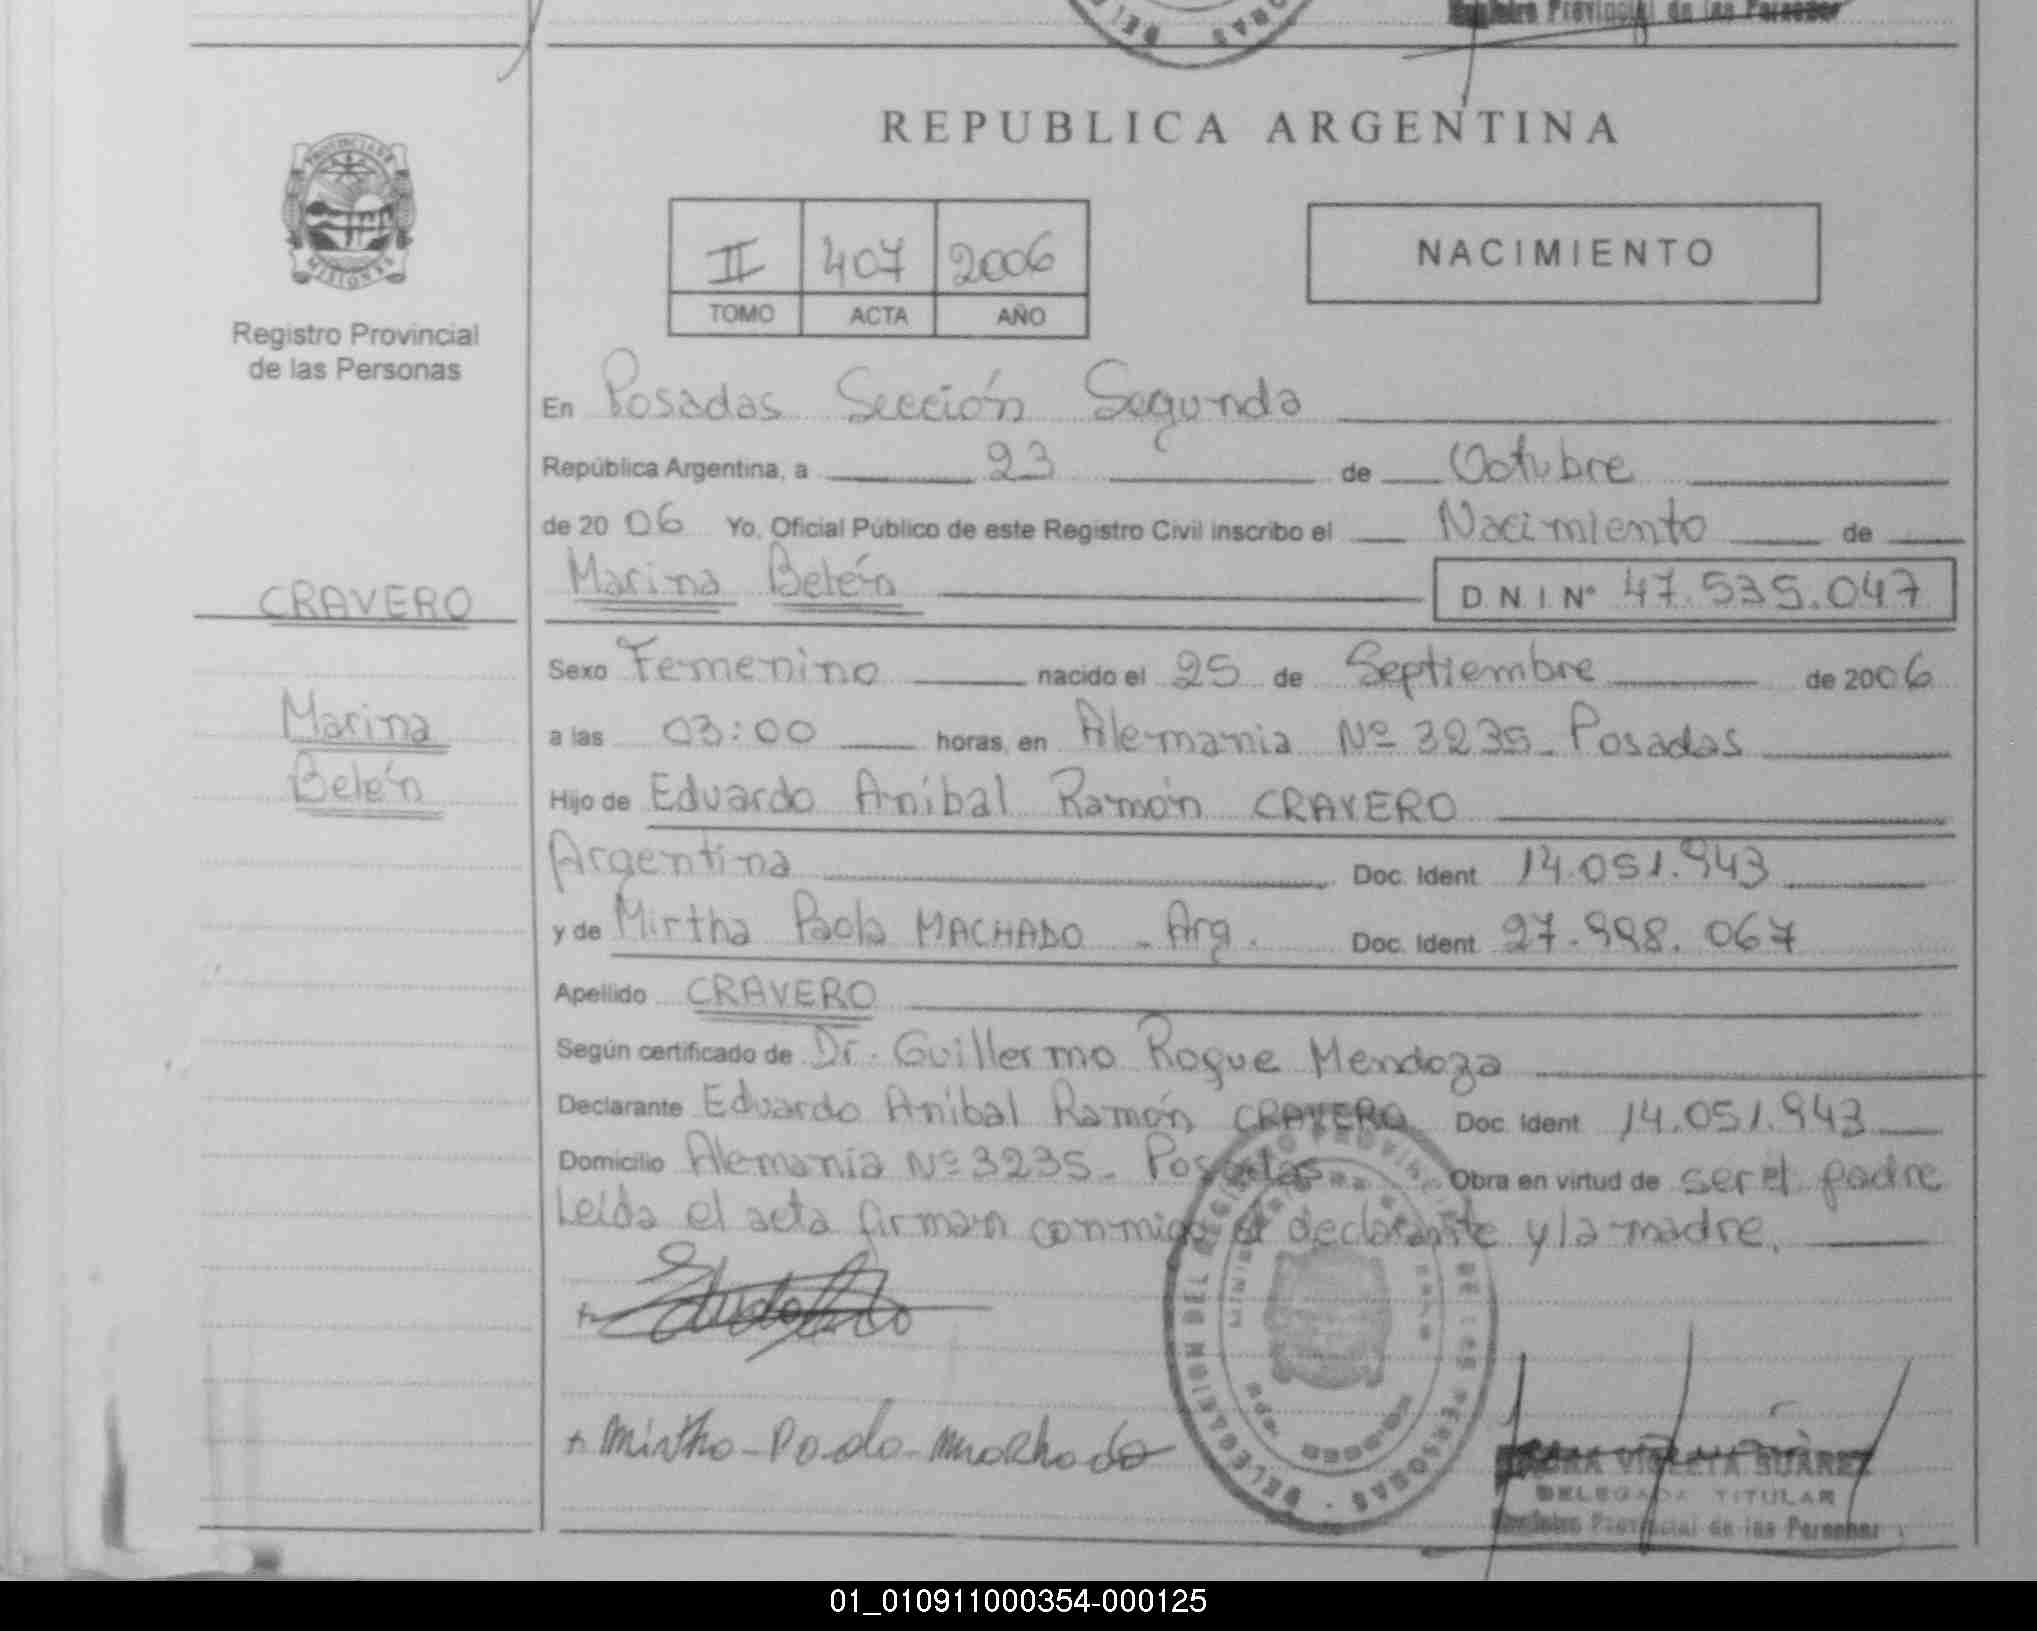 Registro Provincial de las Personas
REPUBLICA ARGENTINA
PROVINCIA DE
MISIONES
Registro Provincial
de las Personas
II 407 2006
TOMO ACTA AÑO
NACIMIENTO
En Posadas Sección Segunda
República Argentina, a 23 de Octubre
de 2006 Yo, Oficial Público de este Registro Civil inscribo el Nacimiento de
CRAVERO
Marina Belén
D.N.I. Nº 47.535.047
Sexo Femenino nacido el 25 de Septiembre de 2006
Marina
Belén
a las 03:00 horas, en Alemania Nº 3235 - Posadas
Hijo de Eduardo Aníbal Ramón CRAVERO
Argentina Doc. Ident. 14.051.943
y de Mirtha Paola MACHADO - Arg. Doc. Ident. 27.998.067
Apellido CRAVERO
Según certificado de Dr. Guillermo Roque Mendoza
Declarante Eduardo Aníbal Ramón CRAVERO Doc. Ident. 14.051.943
Domicilio Alemania Nº 3235 - Posadas Obra en virtud de ser el padre
Leída el acta firman conmigo el declarante y la madre.
Mirtha - Paola - Machado
DELEGACION DEL REGISTRO PROVINCIAL DE LAS PERSONAS
VIOLETA SUAREZ
DELEGADA TITULAR
Registro Provincial de las Personas
01_010911000354-000125